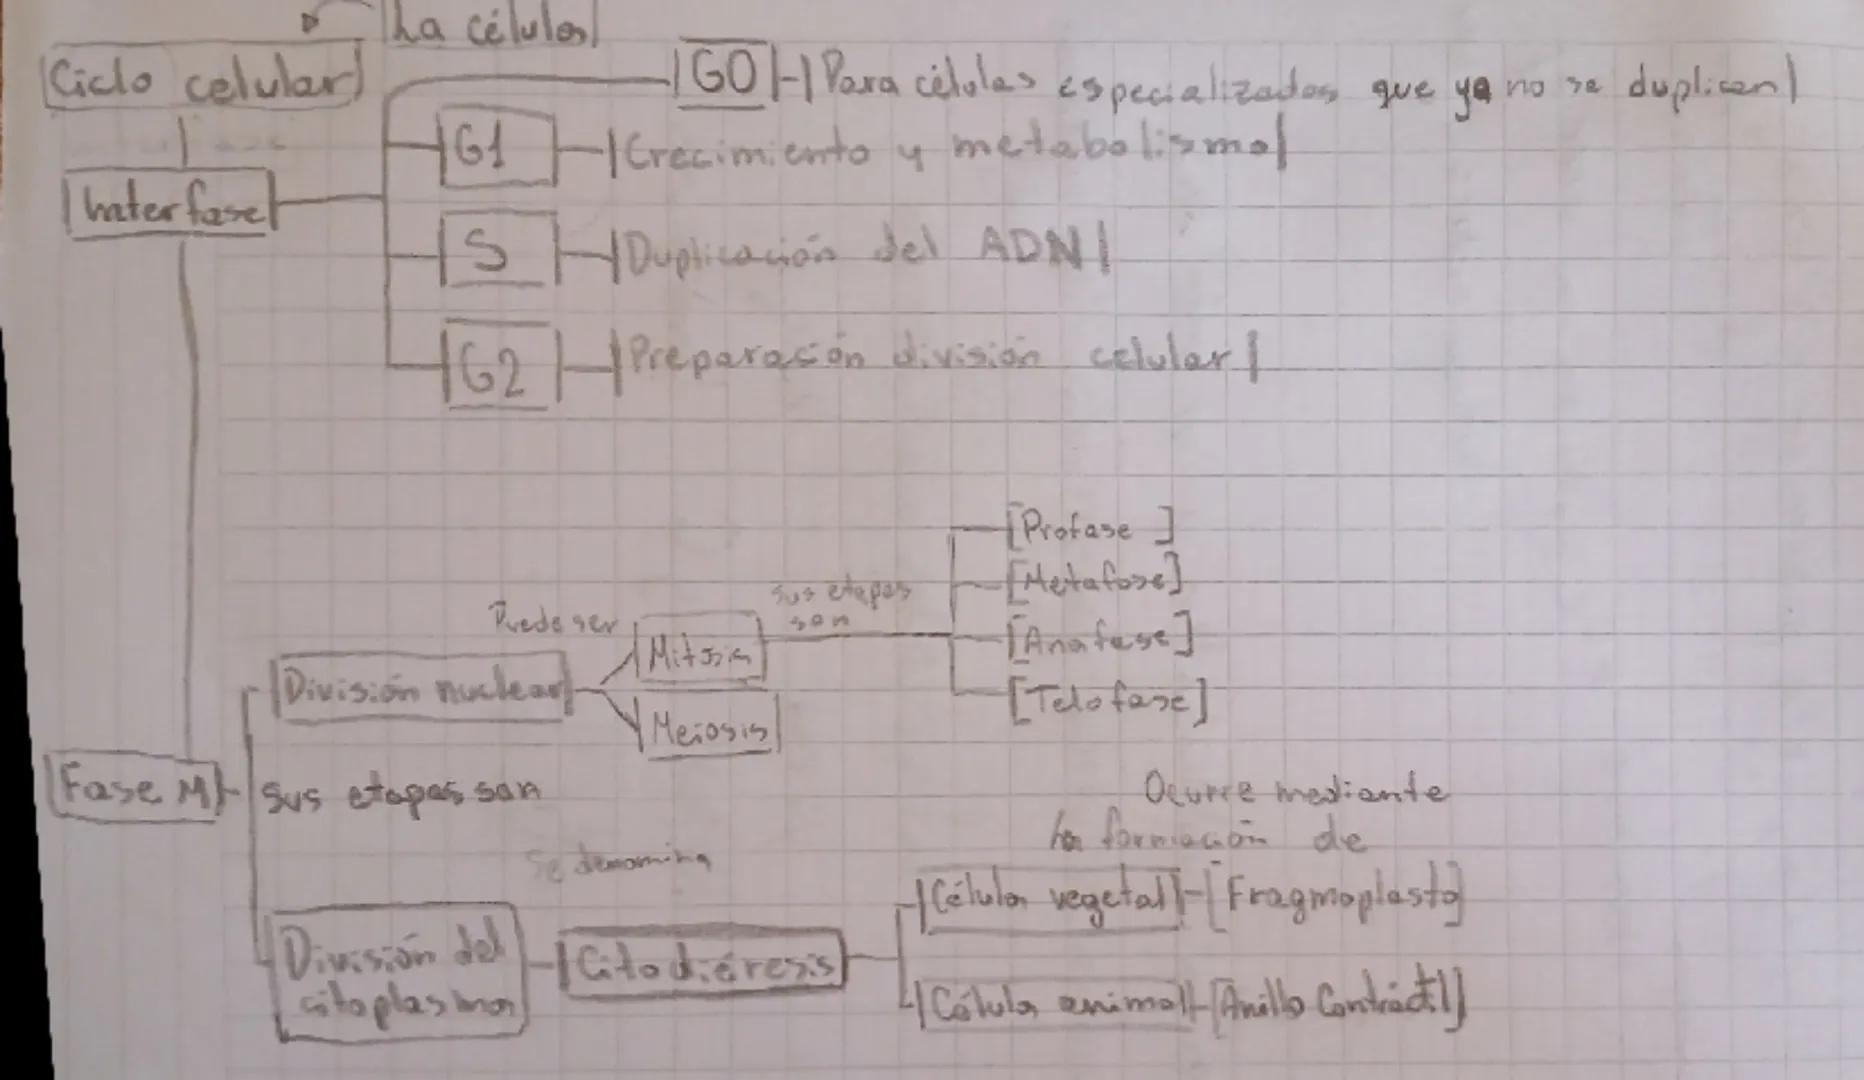 La célula
Ciclo celular
G0 Para células especializadas que ya no se duplican
G1 Crecimiento y metabolismo
Interfase
S Duplicación del ADN
G2 Preparasión división celular
[Profase]
[Metafase]
sus etapas
son
Puede ser
Mitosis
[Anafase]
División nuclear
[Telofase]
Meiosis
Fase M sus etapas son
Ocurre mediante
la formación de
Se denomina
Célula vegetal [Fragmoplasto]
División del
citoplasma
Citodiéresis
Célula animal [Anillo Contráctil]